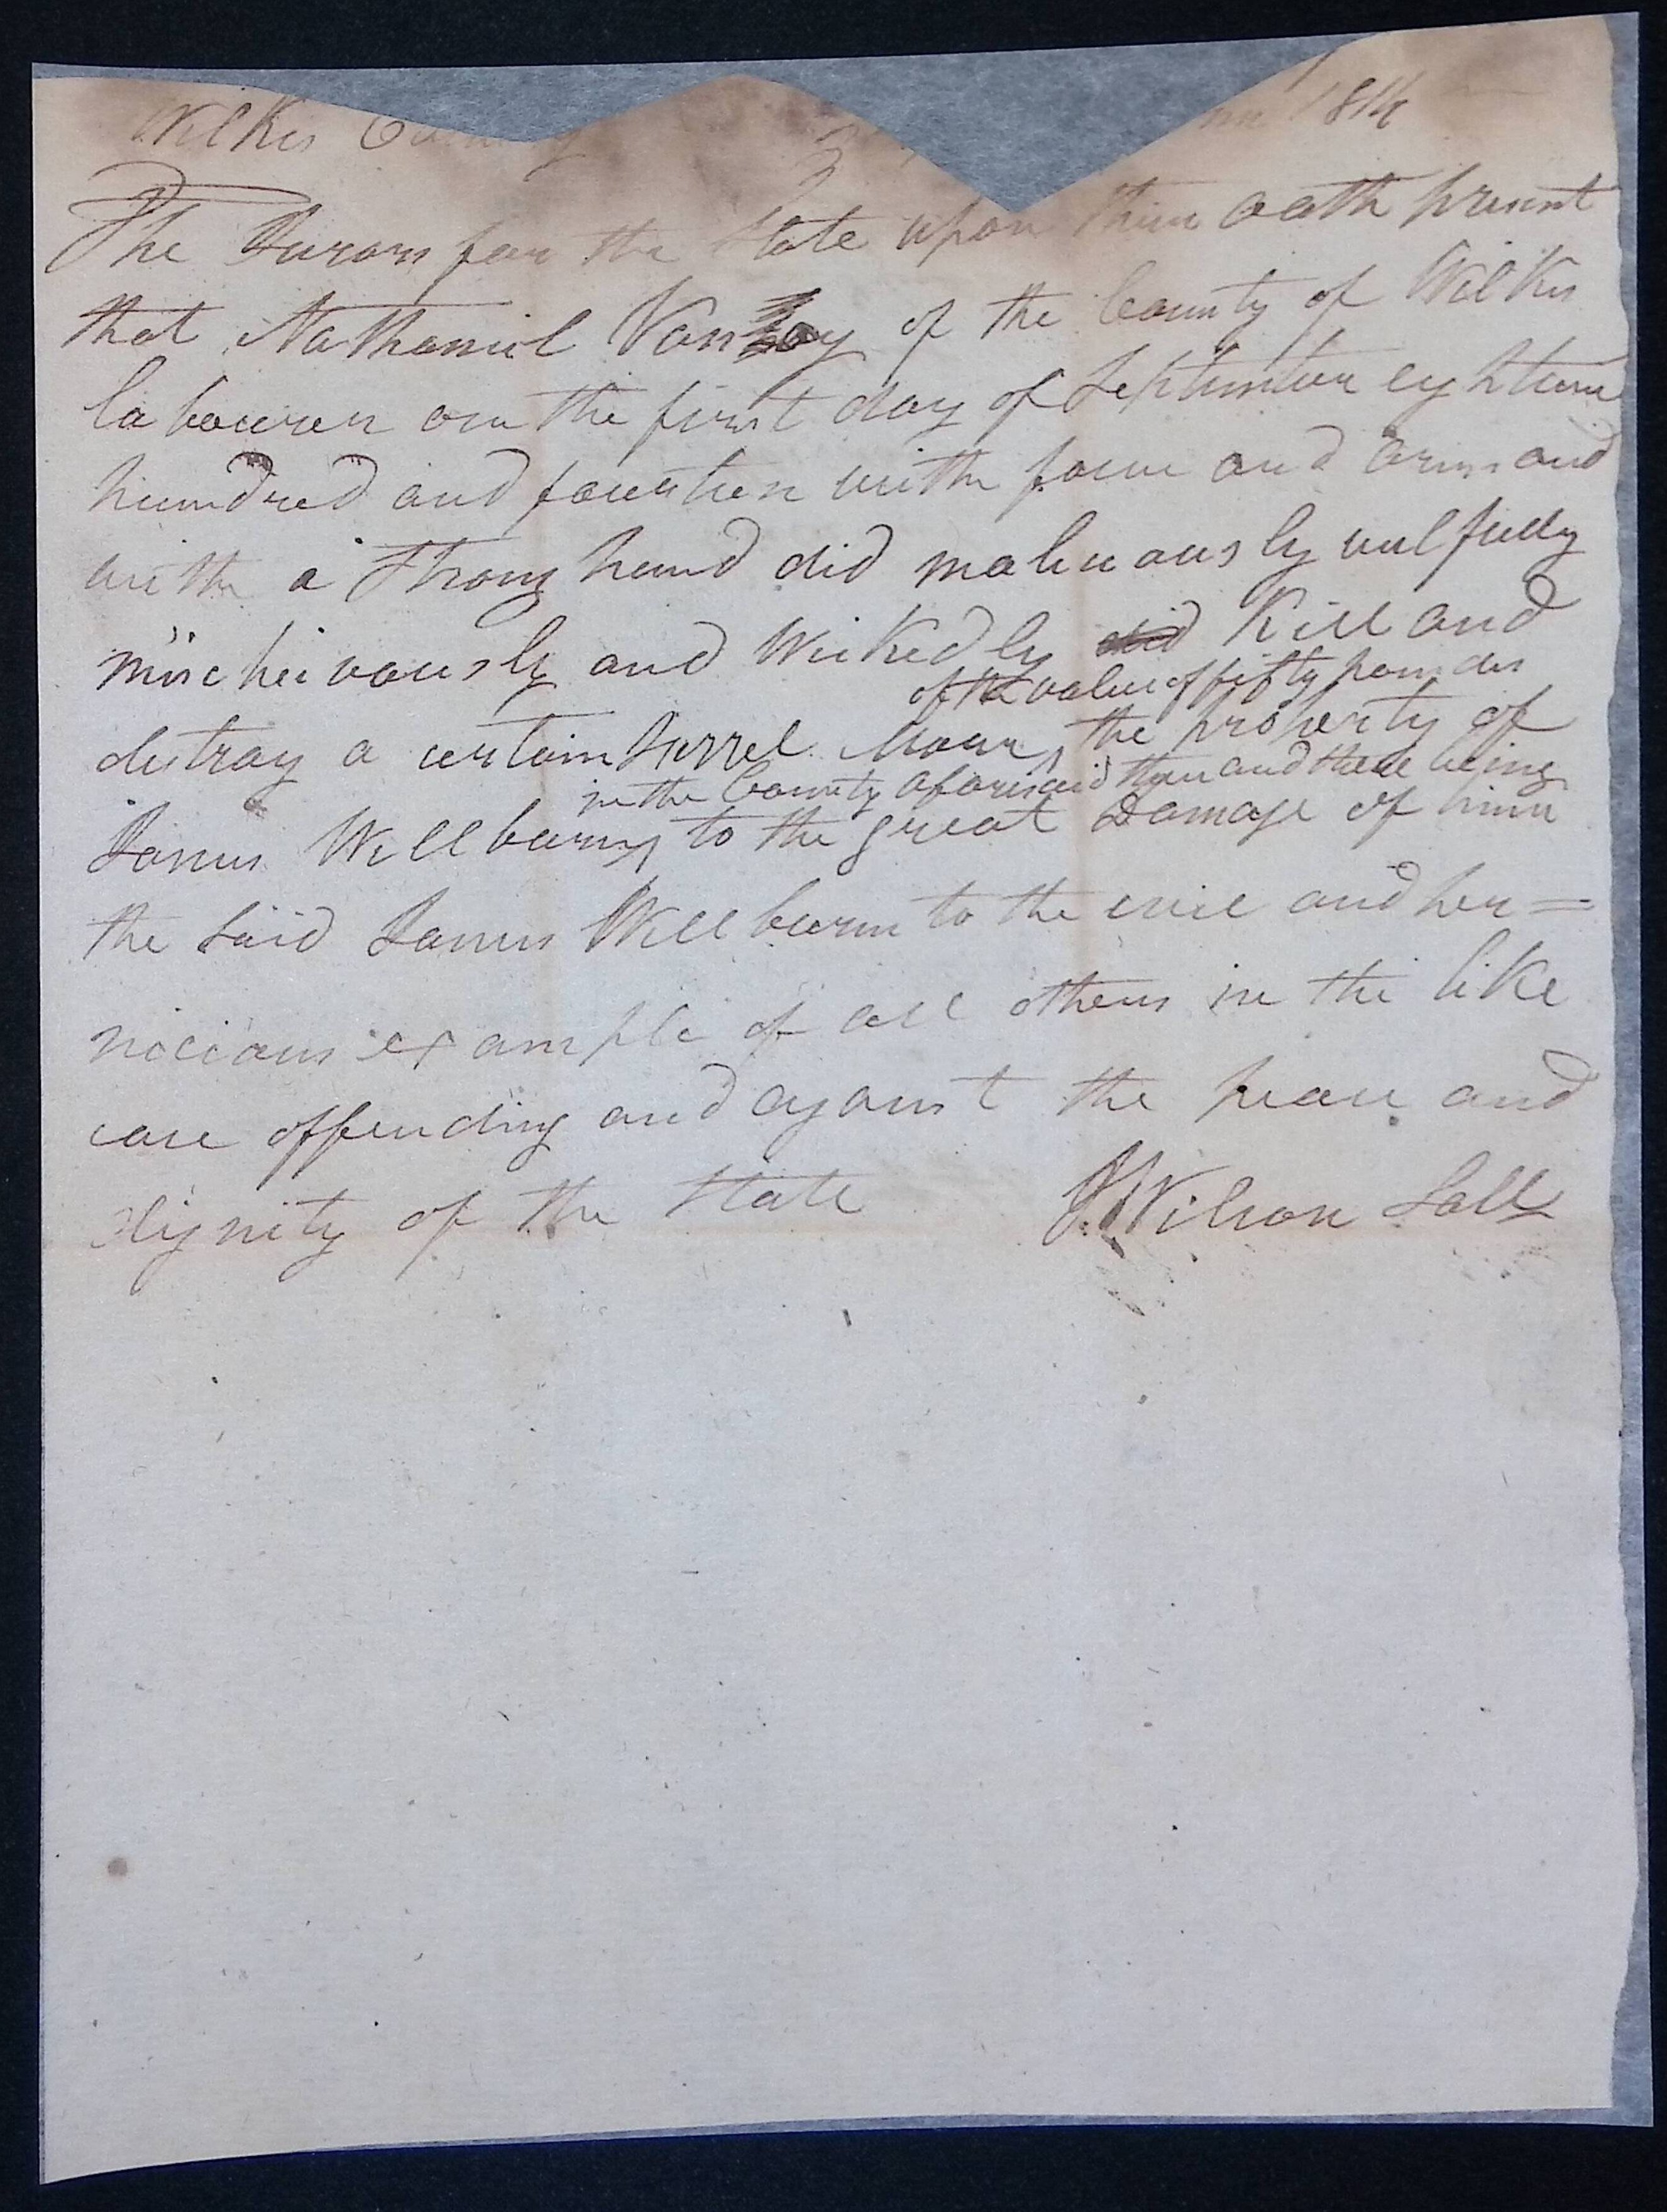 Wilkes County 1814
The Jurors for the State upon their oath present
that Nathaniel Vanhoy of the County of Wilkes
labourer on the first day of September eighteen
hundred and fourteen with force and arms and
with a Strong hand did maliciously wilfully
mischeivously and Wickedly did Kill and
of the value of fifty pounds
destroy a certain Sorrel Mare, the property of
in the County aforesaid then and there being
James Wellburn, to the great Damage of him
the said James Wellburn to the evil and per=
nicious example of all others in the like
case offending and against the peace and
dignity of the State J. Wilson Soll